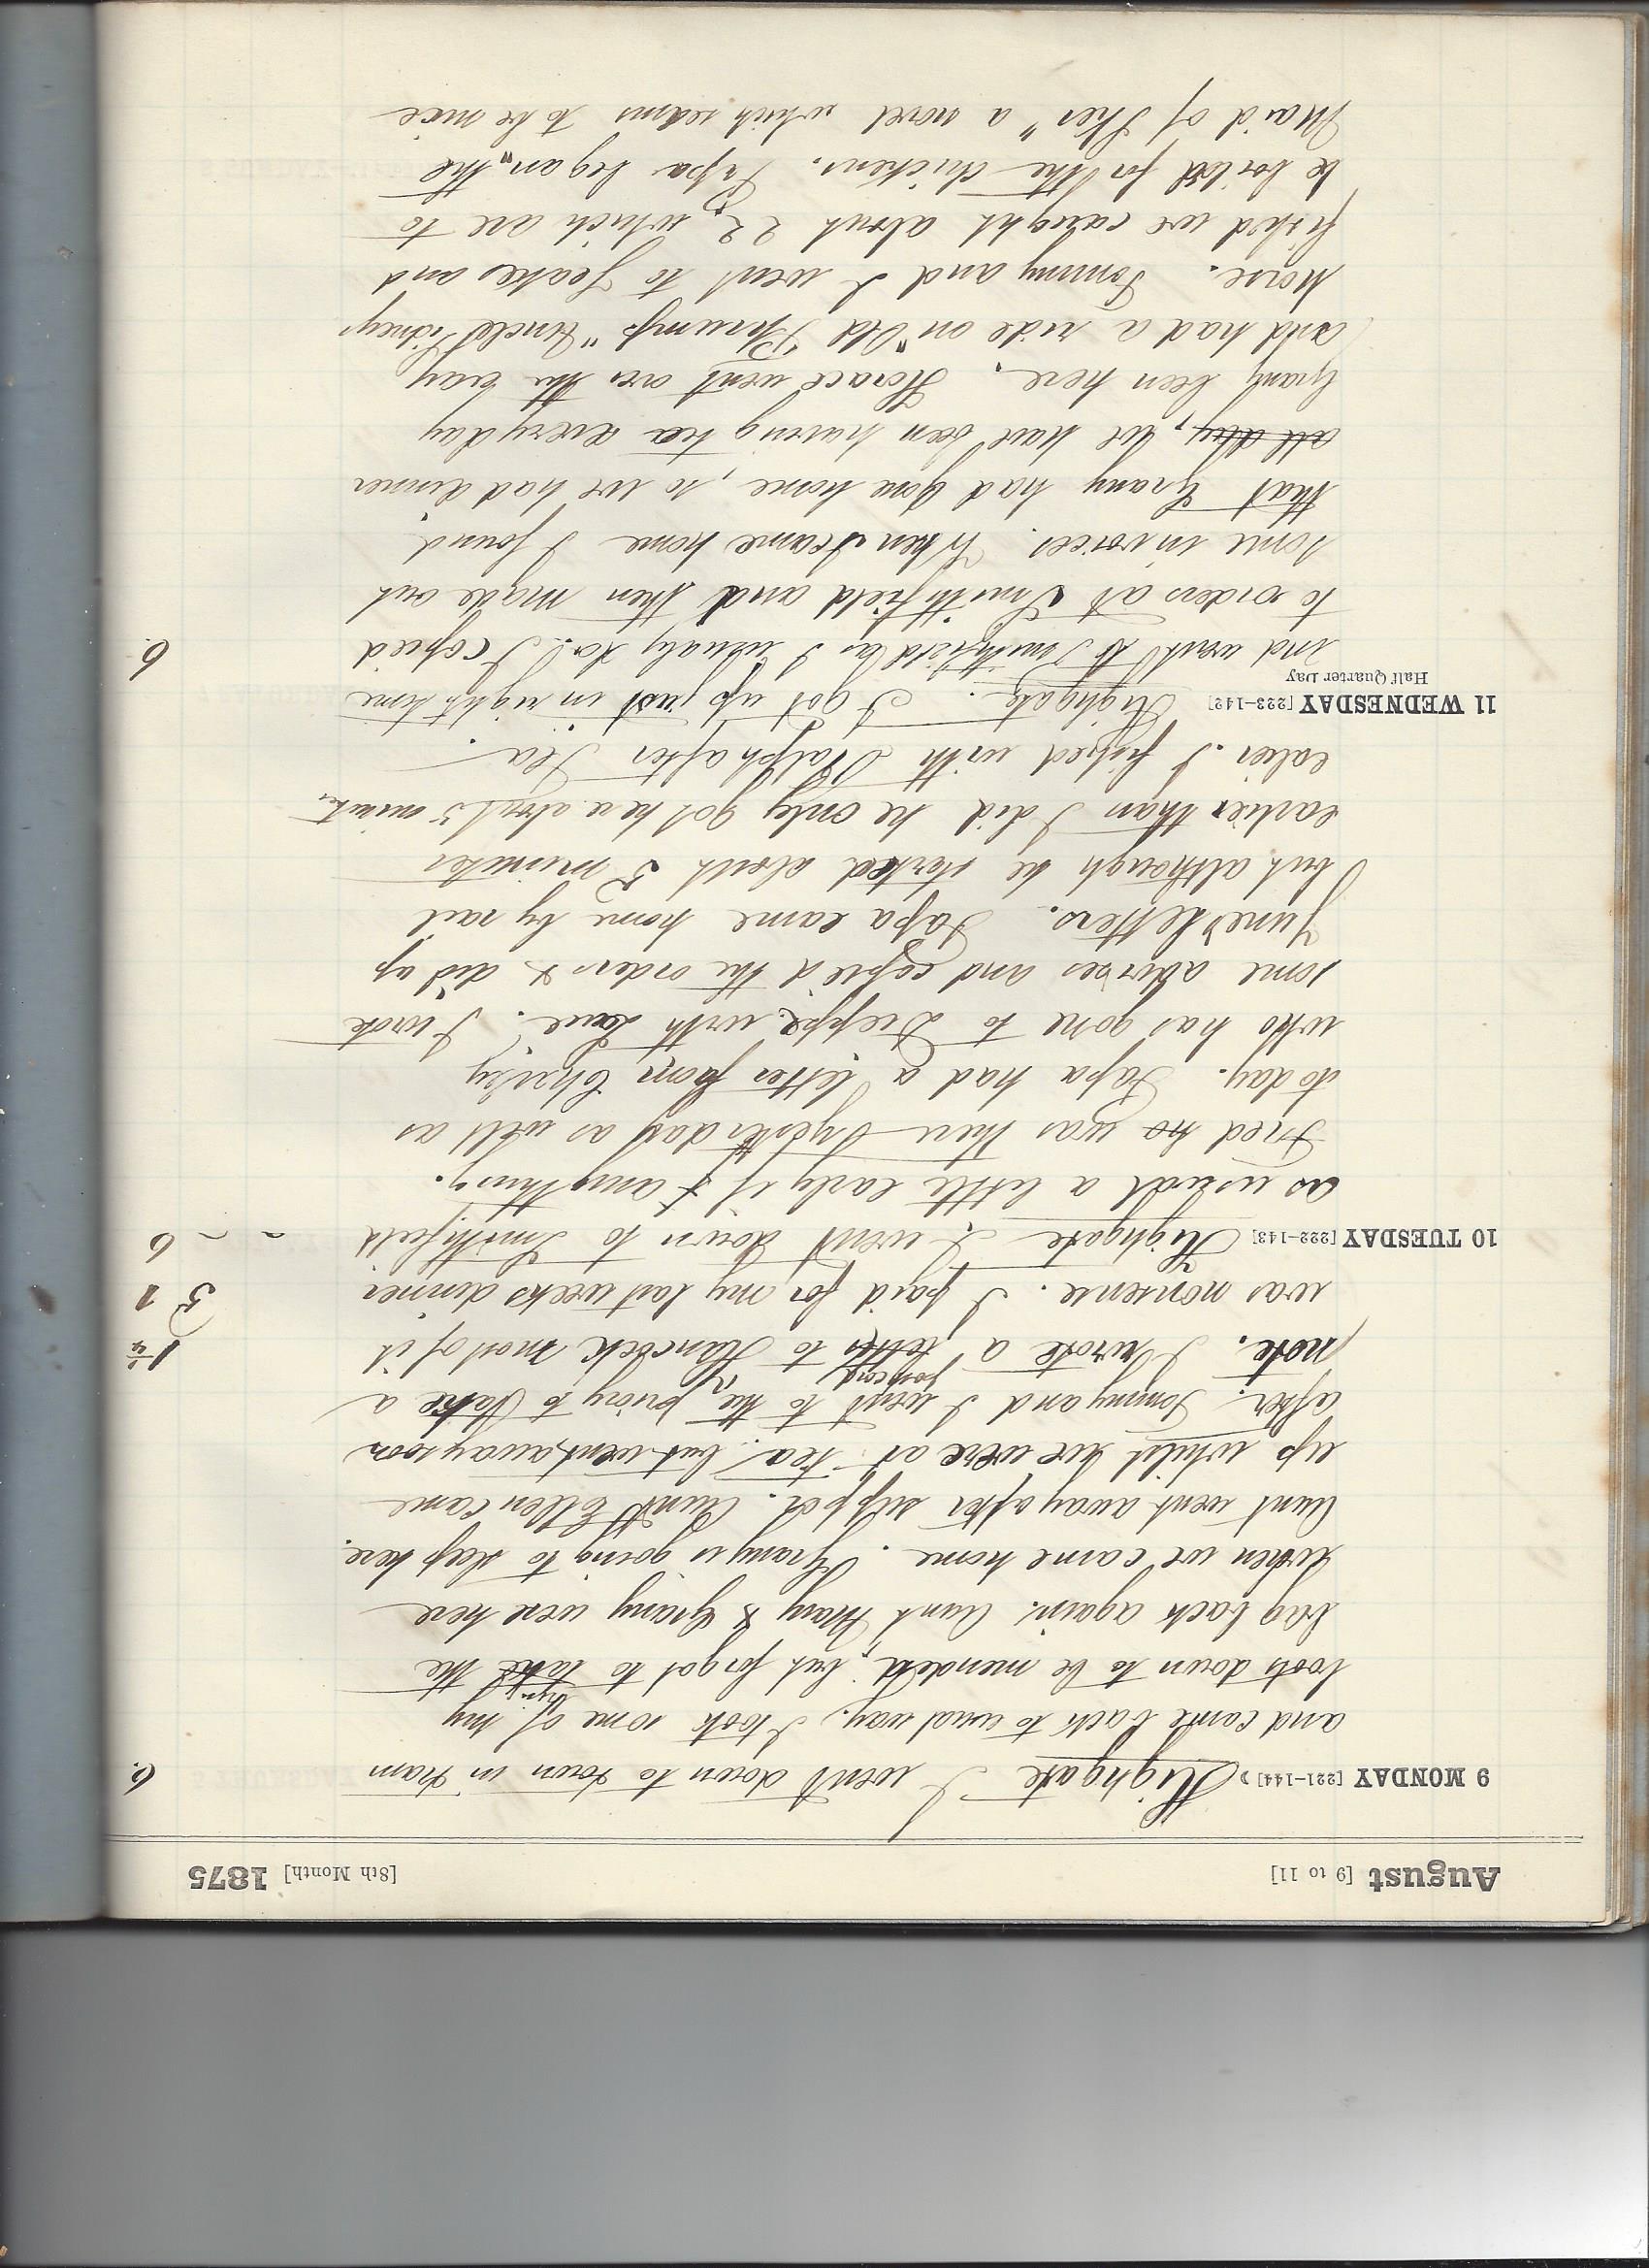 August [9 to 11] [8th Month] 1875
9 MONDAY [221-144] Highgate I went down to town in tram 6.
and came back to usual way. I took some of my
boots down to be mended, but forgot to take the
bag back again. Aunt Mary & Grany were here
when we came home. Grany is going to sleep here.
Aunt went away after supper. Aunt Ellen came
up whilst we were at tea but went away soon
after. Tommy and I went to the priory to take a
note. I wrote a letter to Hancock most of it 1¼
was nonsense. I paid for my last weeks dinner 3 1
10 TUESDAY [222-143] Highgate I went down to Smithfield ~ ~ 6
as usual a little early if anything.
Fred was there yesterday as well as
today. Papa had a letter from
who has gone to Dieppe with I wrote
some abvises and copied the orders & did up
June's letters. Papa came home by rail
but although he started about 5 minutes
earlier than I did he only got here about 5 minutes
ealier. I fished with Ralph after Tea.
11 WEDNESDAY [223-142] Highgate. I got up just in right time
Half Quarter Day
and went to Smithfield as I usualy do. I copied 6.
to orders at Smithfield and then made out
some invoices. When I came home I found
that Grany had gone home, so we had dinner
all day, we have been having tea every day
Grany been here. Horace went over the way
and had a ride on "Old Phrump" Uncle Sidneys
Horse. Tommy and I went to Jeakes and
fished we caught about 22, which are to
be boiled for the chickens. Papa began "the
Maid of Sker" a novel which seams to be nice